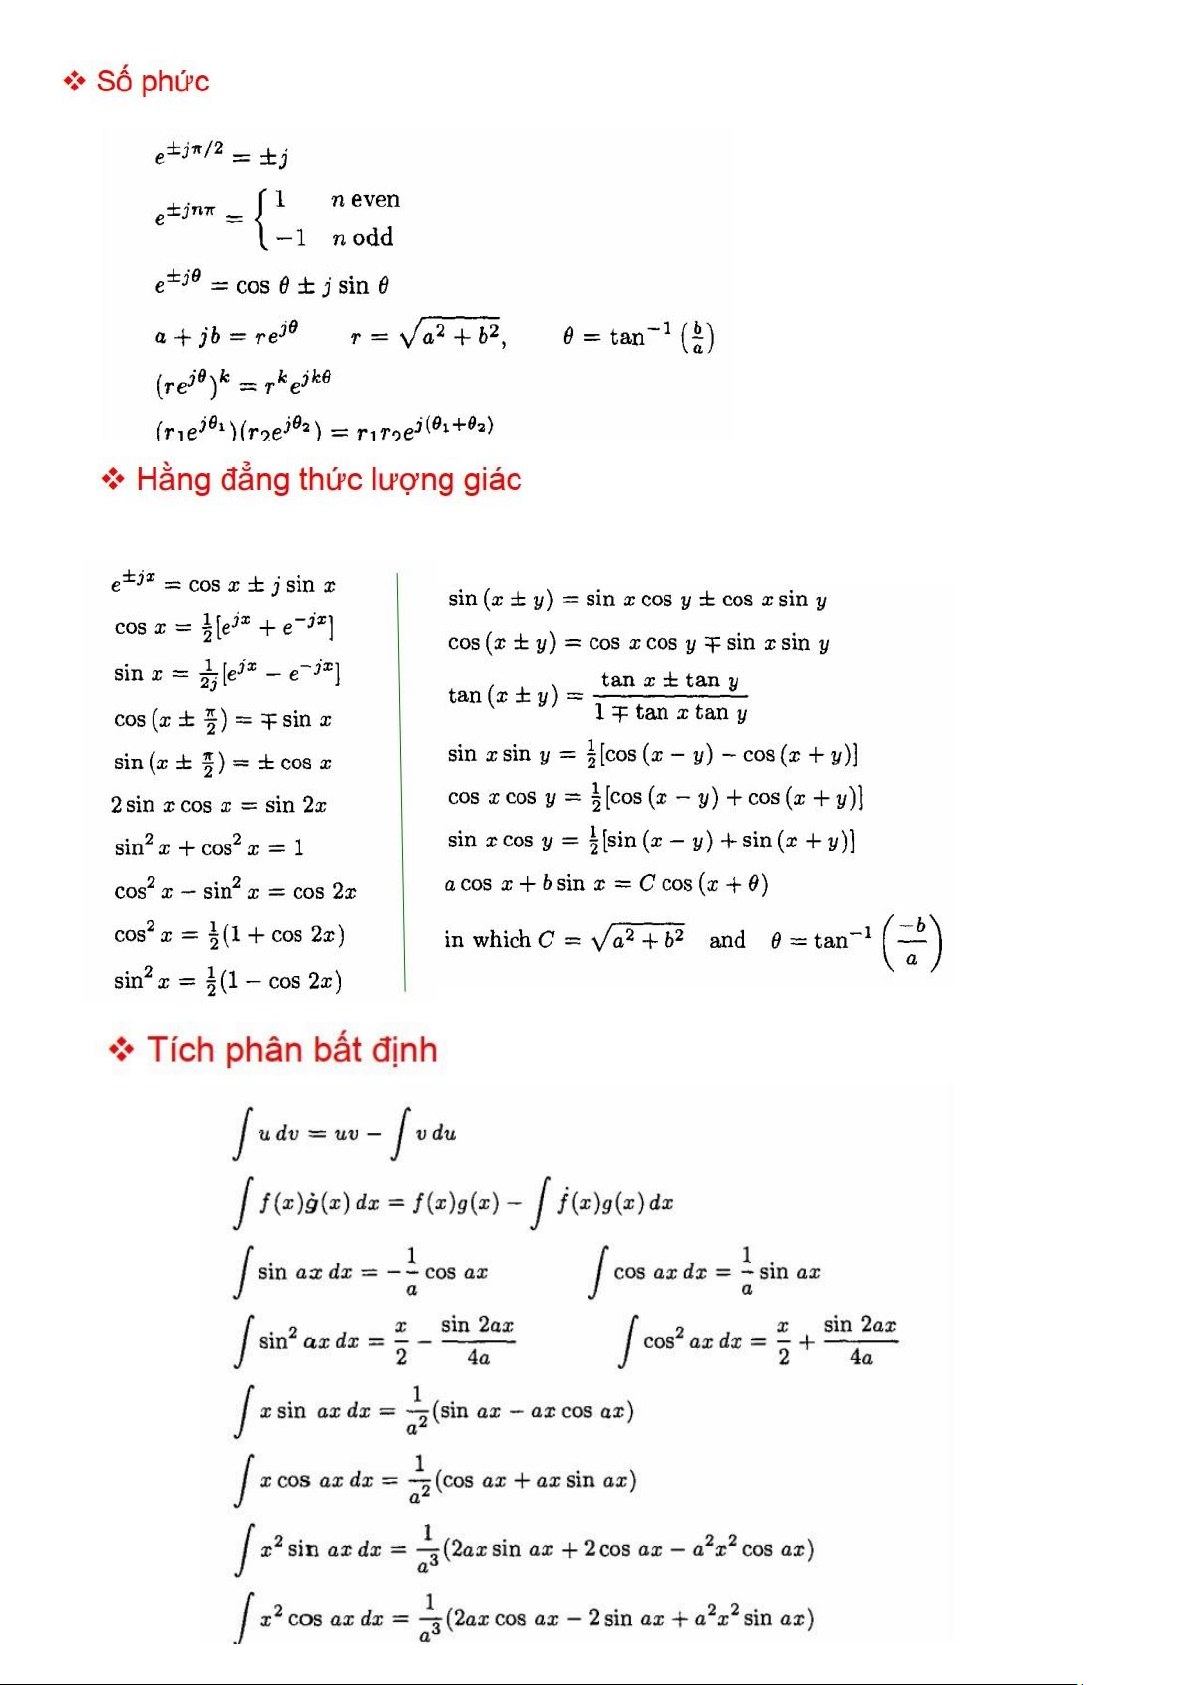 ❖ Số phức
e^{±jπ/2} = ±j
e^{±jnπ} = { 1 n even
−1 n odd
e^{±jθ} = cos θ ± j sin θ
a + jb = re^{jθ} r = √(a² + b²), θ = tan⁻¹ (b/a)
(re^{jθ})^k = r^k e^{jkθ}
(r₁e^{jθ₁})(r₂e^{jθ₂}) = r₁r₂e^{j(θ₁+θ₂)}
❖ Hằng đẳng thức lượng giác
e^{±jx} = cos x ± j sin x
cos x = ½[e^{jx} + e^{−jx}]
sin x = 1/2j [e^{jx} − e^{−jx}]
cos (x ± π/2) = ∓ sin x
sin (x ± π/2) = ± cos x
2 sin x cos x = sin 2x
sin² x + cos² x = 1
cos² x − sin² x = cos 2x
cos² x = ½(1 + cos 2x)
sin² x = ½(1 − cos 2x)
sin (x ± y) = sin x cos y ± cos x sin y
cos (x ± y) = cos x cos y ∓ sin x sin y
tan (x ± y) = (tan x ± tan y)/(1 ∓ tan x tan y)
sin x sin y = ½[cos (x − y) − cos (x + y)]
cos x cos y = ½[cos (x − y) + cos (x + y)]
sin x cos y = ½[sin (x − y) + sin (x + y)]
a cos x + b sin x = C cos (x + θ)
in which C = √(a² + b²) and θ = tan⁻¹ (−b/a)
❖ Tích phân bất định
∫ u dv = uv − ∫ v du
∫ f(x)ġ(x) dx = f(x)g(x) − ∫ ḟ(x)g(x) dx
∫ sin ax dx = −1/a cos ax ∫ cos ax dx = 1/a sin ax
∫ sin² ax dx = x/2 − sin 2ax/4a ∫ cos² ax dx = x/2 + sin 2ax/4a
∫ x sin ax dx = 1/a² (sin ax − ax cos ax)
∫ x cos ax dx = 1/a² (cos ax + ax sin ax)
∫ x² sin ax dx = 1/a³ (2ax sin ax + 2 cos ax − a²x² cos ax)
∫ x² cos ax dx = 1/a³ (2ax cos ax − 2 sin ax + a²x² sin ax)